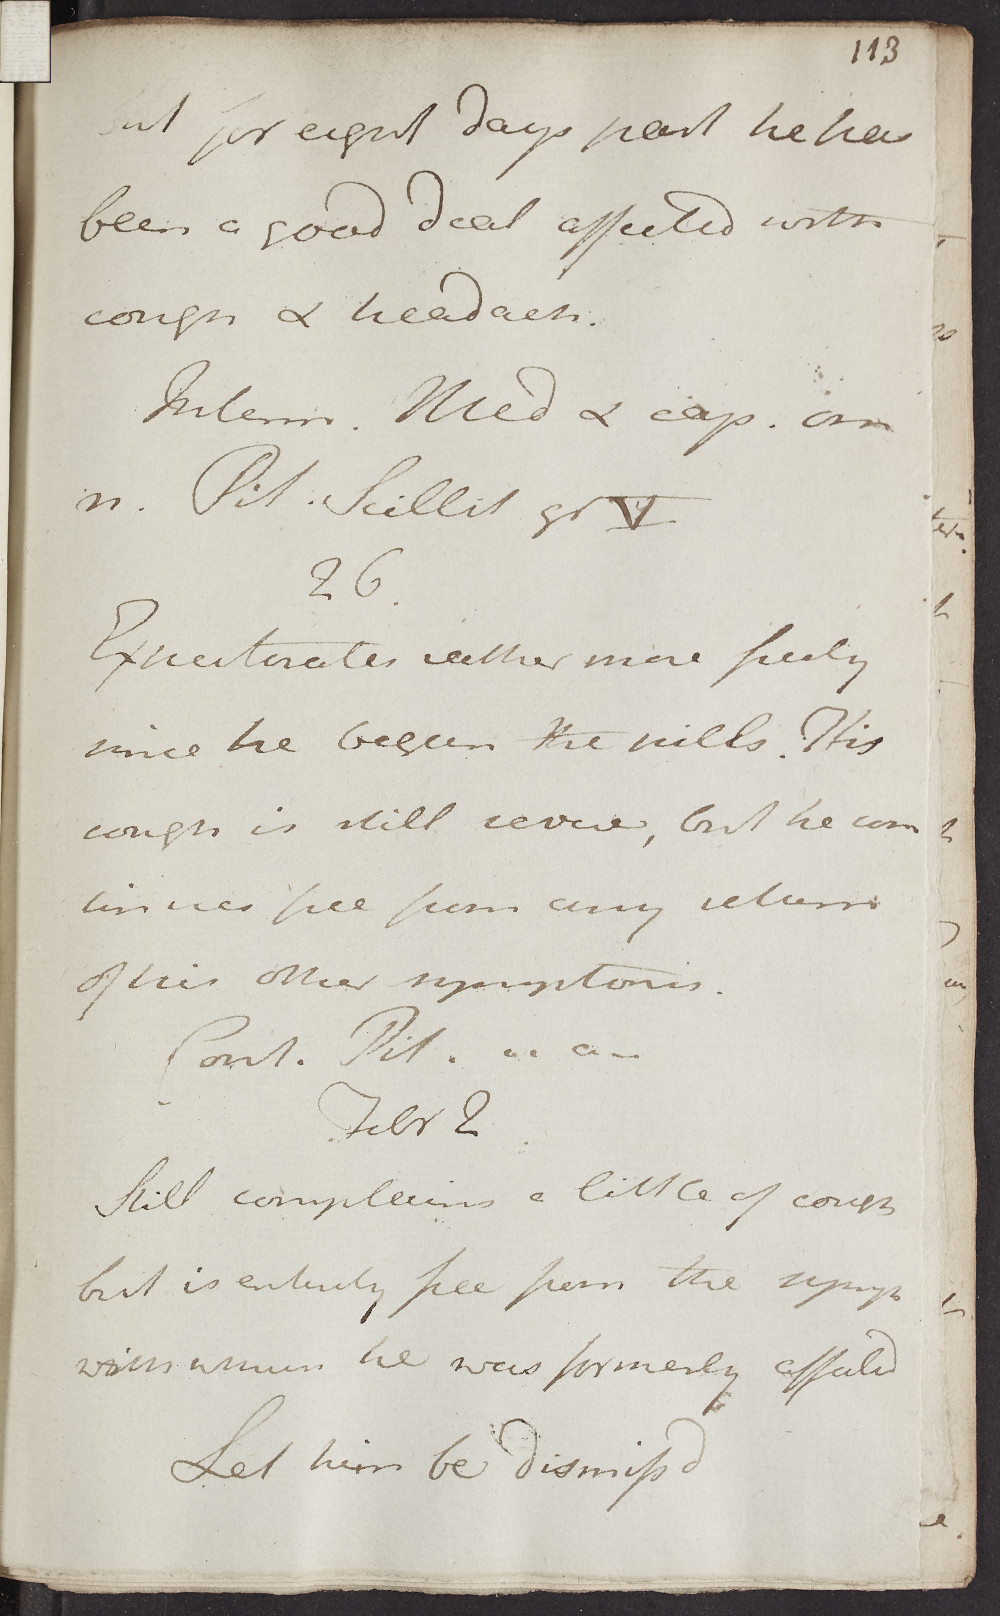 113
but for eight days past he has
been a good deal affected with
cough & headach.
Interm. Med & cap. om
n. Pil. Scillit gr V
26.
Expectorates rather more freely
since he begun the pills. His
cough is still severe, but he con
tinues free from any return
of his other symptoms.
Cont. Pil.
Febr 2
Still complains a little of cough
but is entirely free from the symp
with which he was formerly affected
Let him be dismissd